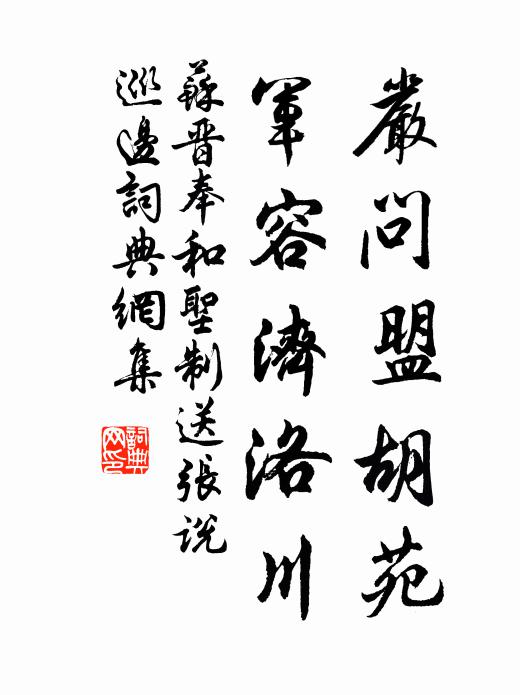 嚴問盟胡苑
軍容濟洛川
蘇晋奉和聖制送張說
巡邊詞典網集
詞典网印